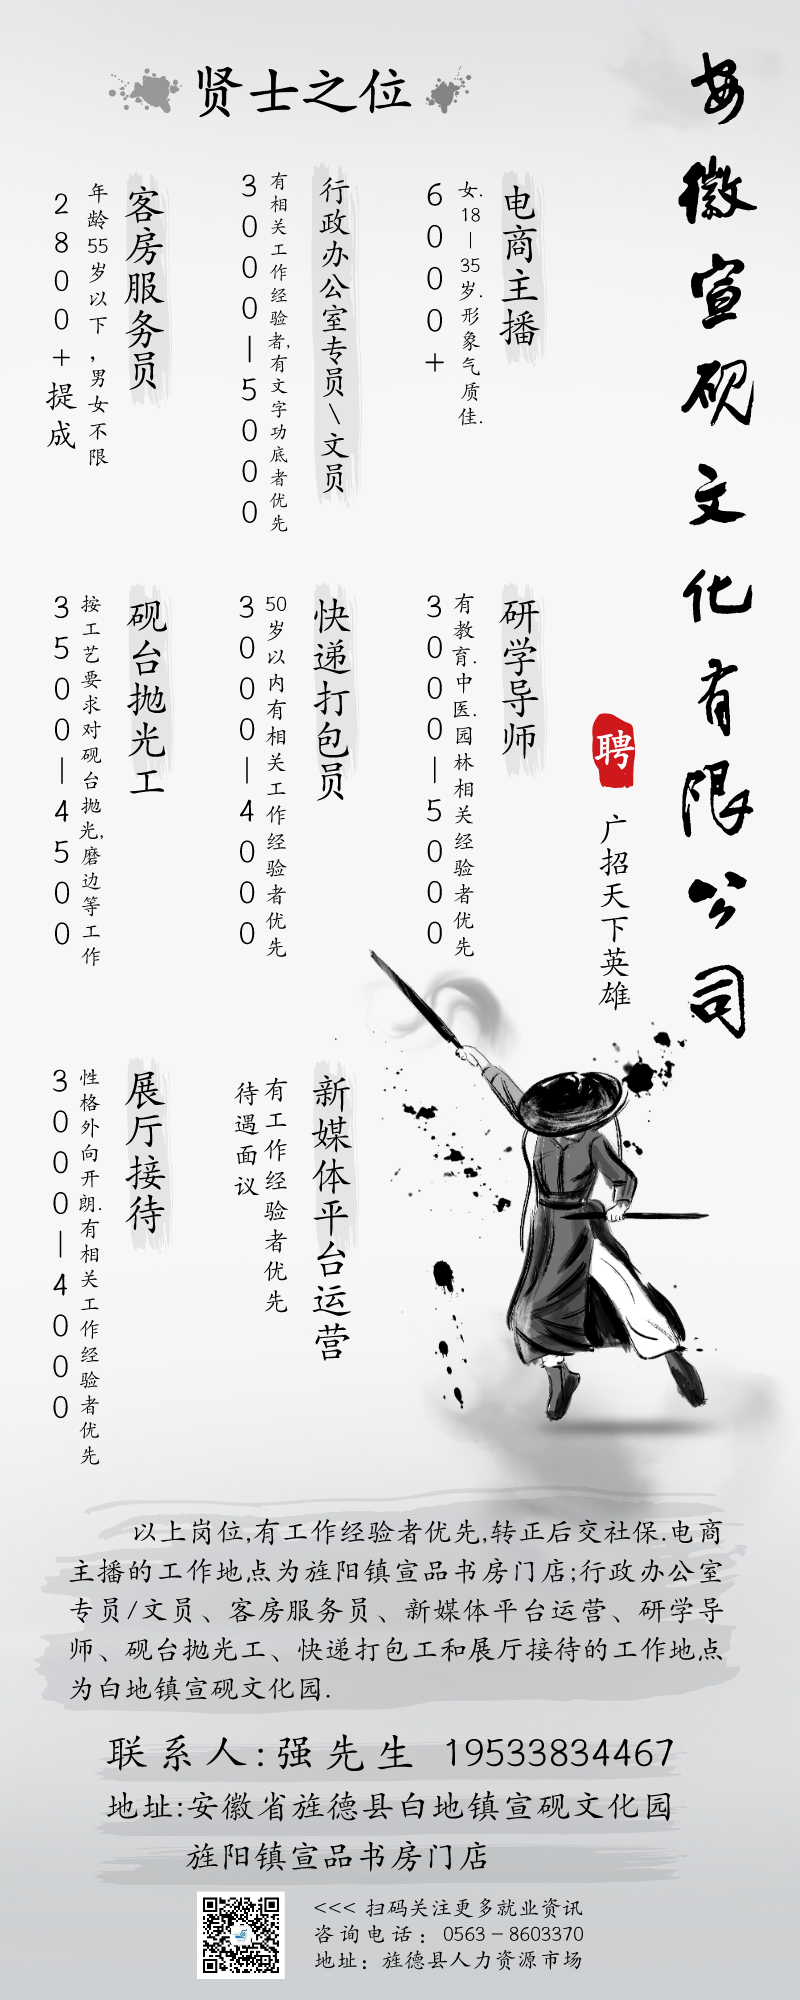 安徽宣砚文化有限公司
聘
广招天下英雄
贤士之位
电商主播
女.18—35岁.形象气质佳.
6000+
行政办公室专员\文员
有相关工作经验者,有文字功底者优先
3000—5000
客房服务员
年龄55岁以下,男女不限
2800+提成
研学导师
有教育.中医.园林相关经验者优先
3000—5000
快递打包员
50岁以内有相关工作经验者优先
3000—4000
砚台抛光工
按工艺要求对砚台抛光,磨边等工作
3500—4500
新媒体平台运营
有工作经验者优先
待遇面议
展厅接待
性格外向开朗.有相关工作经验者优先
3000—4000
以上岗位,有工作经验者优先,转正后交社保.电商
主播的工作地点为旌阳镇宣品书房门店;行政办公室
专员/文员、客房服务员、新媒体平台运营、研学导
师、砚台抛光工、快递打包工和展厅接待的工作地点
为白地镇宣砚文化园.
联系人:强先生 19533834467
地址:安徽省旌德县白地镇宣砚文化园
旌阳镇宣品书房门店
<<< 扫码关注更多就业资讯
咨询电话：0563-8603370
地址：旌德县人力资源市场